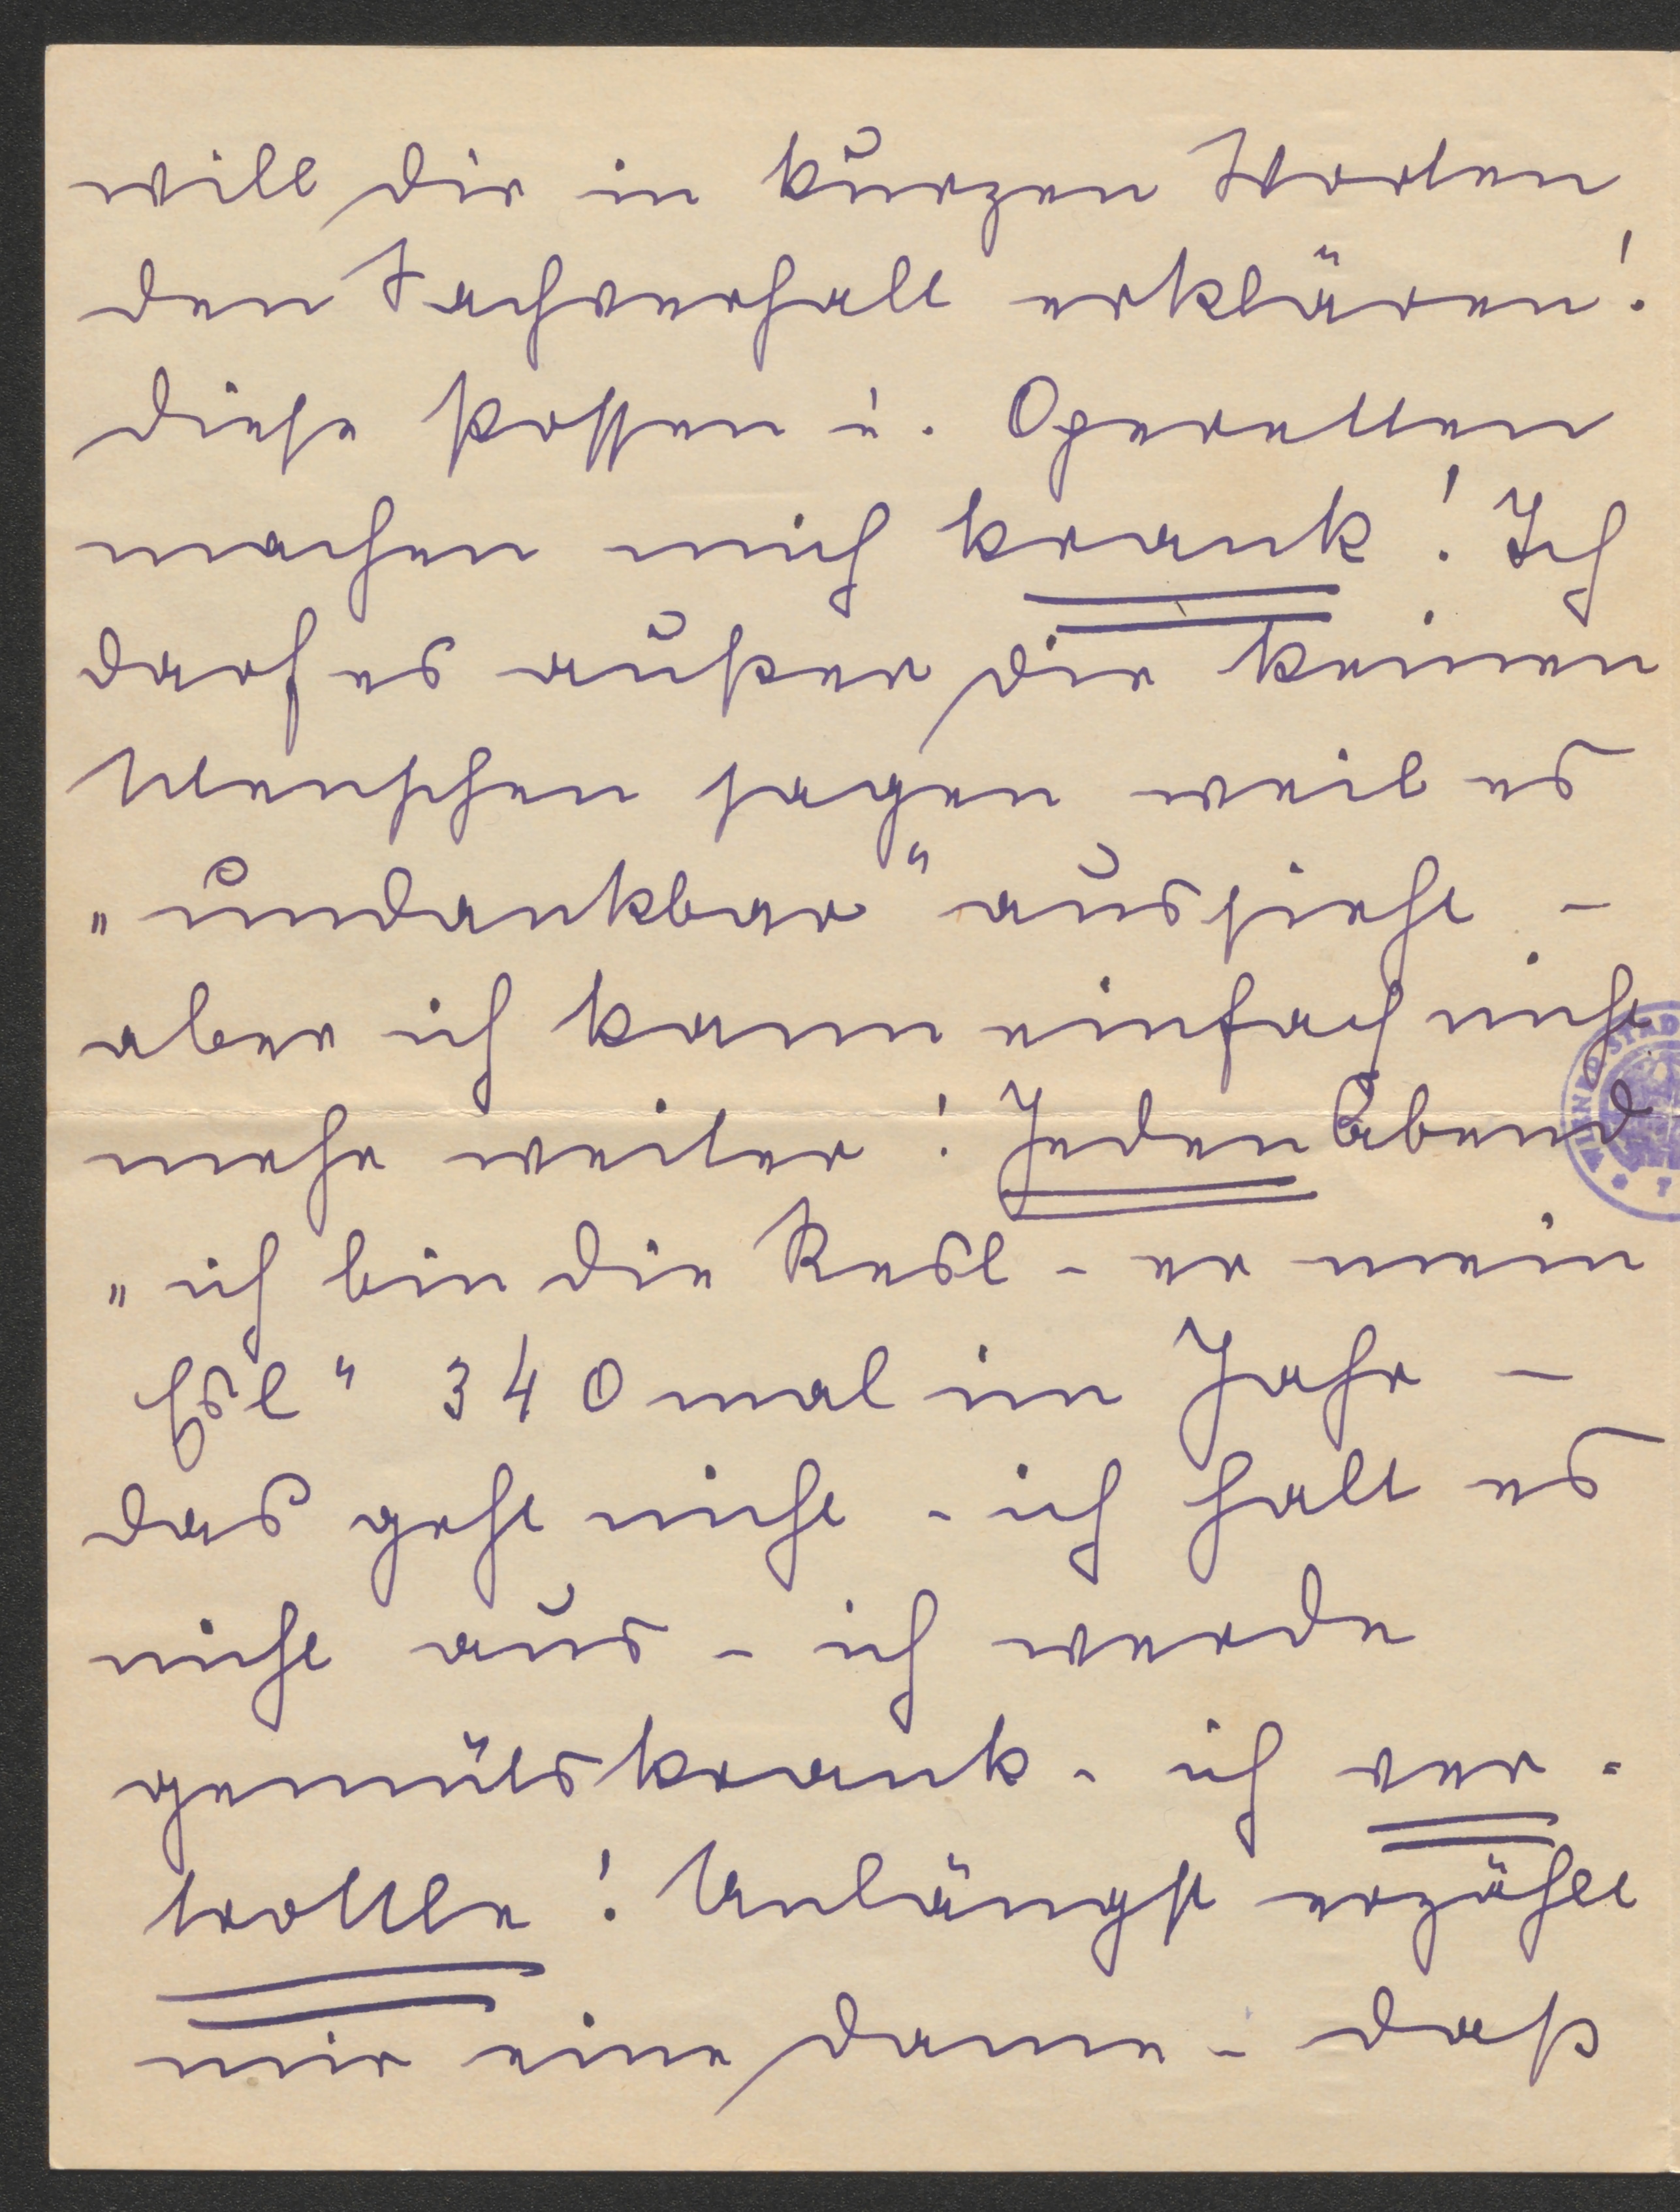 will dir in kurzen Worten
den Sachverhalt erklären!
diese Possen u. Operetten
machen mich krank! Ich
darf es außer dir keinen
Menschen sagen weil es
„undankbar“ aussieht –
aber ich kann einfach nicht
mehr weiter! Jeden Abend
„ich bin die Resl – er mein
Esl“ 340 mal im Jahr –
das geht nicht – ich halt es
nicht aus – ich werde
gemütskrank – ich ver-
trottle! Unlängst erzählt
mir eine Dame – daß